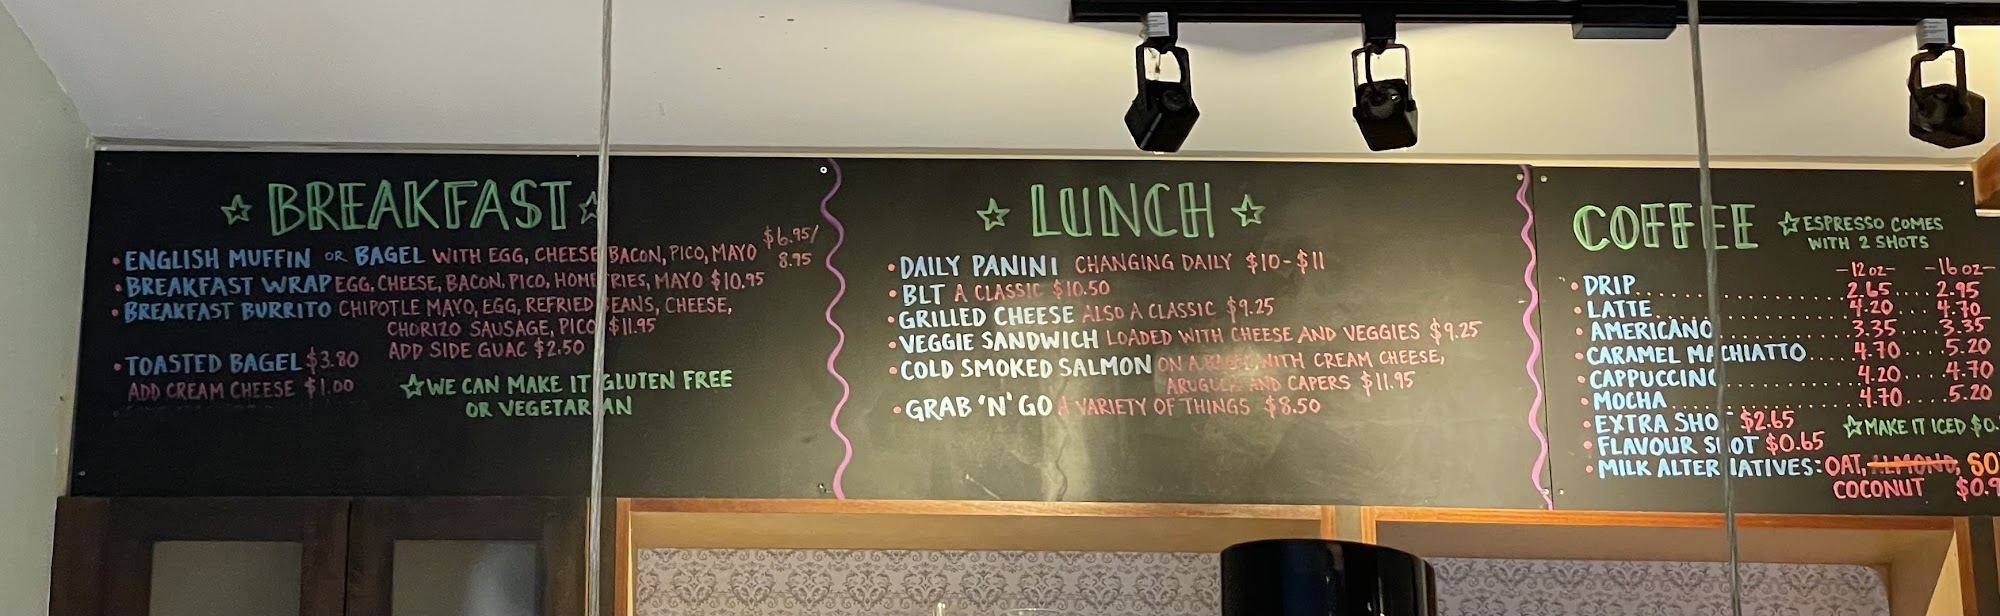 ☆ BREAKFAST ☆
• ENGLISH MUFFIN OR BAGEL WITH EGG, CHEESE BACON, PICO, MAYO $6.95/8.95
• BREAKFAST WRAP EGG, CHEESE, BACON, PICO, HOME FRIES, MAYO $10.95
• BREAKFAST BURRITO CHIPOTLE MAYO, EGG, REFRIED BEANS, CHEESE,
CHORIZO SAUSAGE, PICO $11.95
ADD SIDE GUAC $2.50
• TOASTED BAGEL $3.80
ADD CREAM CHEESE $1.00
☆ WE CAN MAKE IT GLUTEN FREE
OR VEGETARIAN
☆ LUNCH ☆
• DAILY PANINI CHANGING DAILY $10-$11
• BLT A CLASSIC $10.50
• GRILLED CHEESE ALSO A CLASSIC $9.25
• VEGGIE SANDWICH LOADED WITH CHEESE AND VEGGIES $9.25
• COLD SMOKED SALMON ON A BAGEL WITH CREAM CHEESE,
ARUGULA AND CAPERS $11.95
• GRAB 'N' GO A VARIETY OF THINGS $8.50
COFFEE ☆ ESPRESSO COMES
WITH 2 SHOTS
-12 oz- -16 oz-
• DRIP 2.65 2.95
• LATTE 4.20 4.70
• AMERICANO 3.35 3.35
• CARAMEL MACCHIATTO 4.70 5.20
• CAPPUCCINO 4.20 4.70
• MOCHA 4.70 5.20
• EXTRA SHOT $2.65
☆ MAKE IT ICED $0.
• FLAVOUR SHOT $0.65
• MILK ALTERNATIVES: OAT, ALMOND, SO
COCONUT $0.9